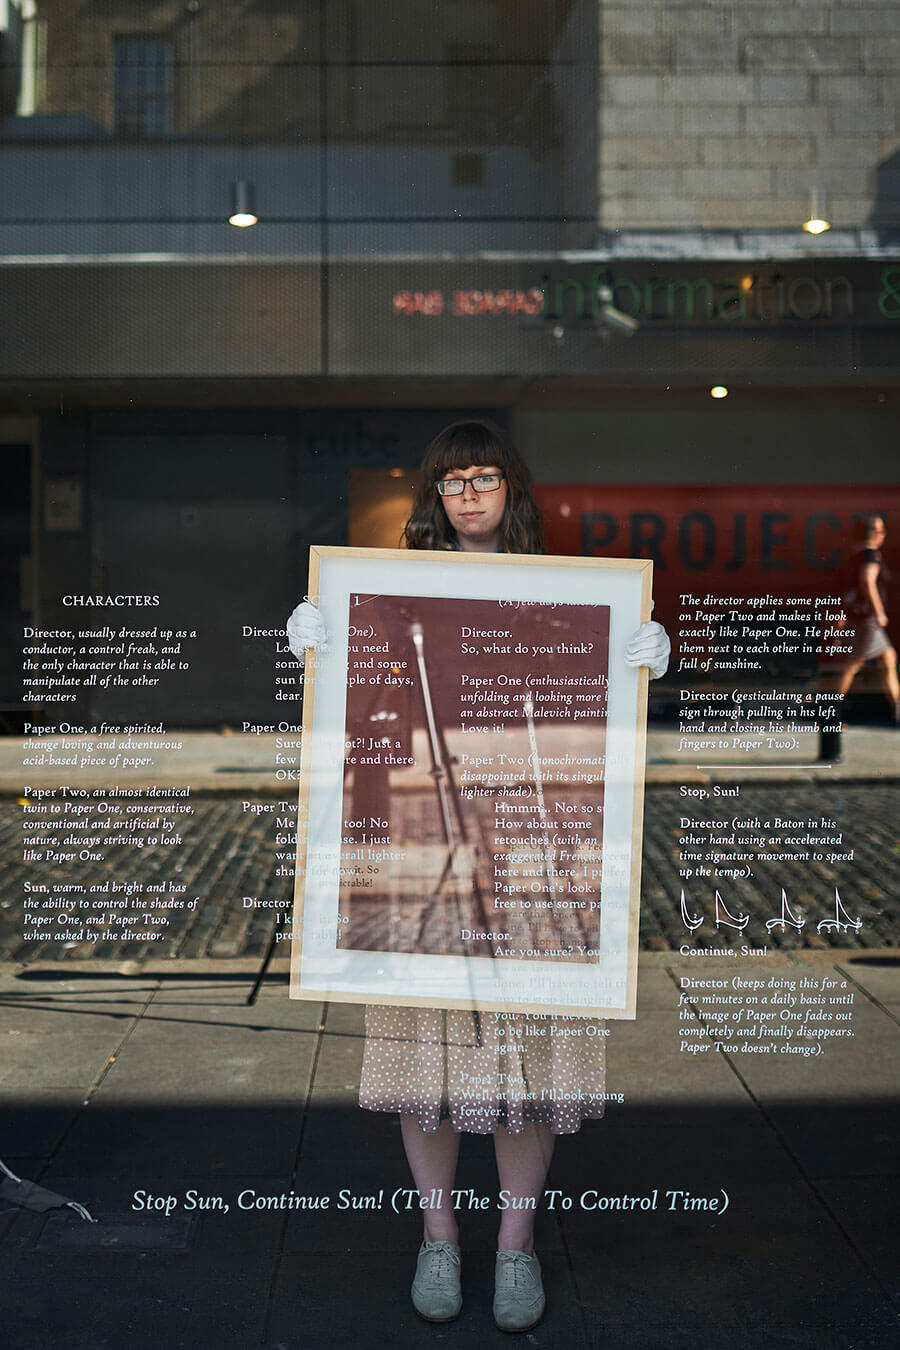 GARAGE BAR
information &
cube
PROJECT
CHARACTERS
Director, usually dressed up as a
conductor, a control freak, and
the only character that is able to
manipulate all of the other
characters
Paper One, a free spirited,
change loving and adventurous
acid-based piece of paper.
Paper Two, an almost identical
twin to Paper One, conservative,
conventional and artificial by
nature, always striving to look
like Paper One.
Sun, warm, and bright and has
the ability to control the shades of
Paper One, and Paper Two,
when asked by the director.
1
Director One).
Looks you need
some and some
sun for of days,
dear.
Paper One
Sure Just a
few here and there,
OK?
Paper Two
Me too! No
please. I just
want overall lighter
shade for now.
Director.
I know it. So
predictable!
(A few days
Director.
So, what do you think?
Paper One (enthusiastically
unfolding and looking more
an abstract Malevich painting
Love it!
Paper Two (monochromatically
disappointed with its
lighter shade).
Hmmm.. Not so
How about some
retouches (with an
exaggerated French accent
here and there, I prefer
Paper One's look. Feel
free to use some
Director.
Are you sure? You
done, I'll have to tell
sun to stop changing
you. You'll never
to be like Paper One
again.
Paper Two.
Well, at least I'll look young
forever.
The director applies some paint
on Paper Two and makes it look
exactly like Paper One. He places
them next to each other in a space
full of sunshine.
Director (gesticulating a pause
sign through pulling in his left
hand and closing his thumb and
fingers to Paper Two):
Stop, Sun!
Director (with a Baton in his
other hand using an accelerated
time signature movement to speed
up the tempo).
Continue, Sun!
Director (keeps doing this for a
few minutes on a daily basis until
the image of Paper One fades out
completely and finally disappears.
Paper Two doesn't change).
Stop Sun, Continue Sun! (Tell The Sun To Control Time)